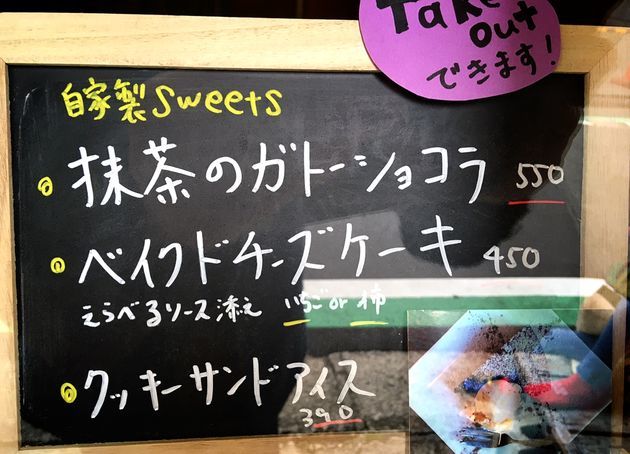 Take
out
できます!
自家製sweets
抹茶のガトーショコラ 550
ベイクドチーズケーキ 450
えらべるソース添え いちご or 柿
クッキーサンドアイス
390